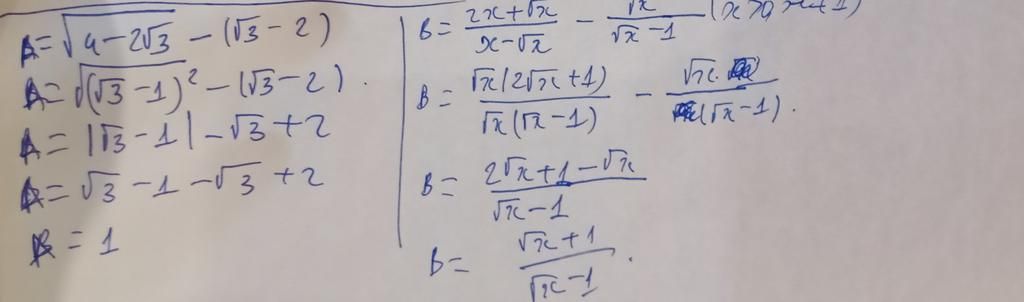 A = √(4 - 2√3) - (√3 - 2)
A = √((√3 - 1)²) - (√3 - 2).
A = |√3 - 1| - √3 + 2
A = √3 - 1 - √3 + 2
A = 1
B = (2x + √x)/(x - √x) - √x/(√x - 1) (x > 0, x ≠ 1)
B = √x(2√x + 1)/(√x(√x - 1)) - √x/(√x - 1).
B = (2√x + 1 - √x)/(√x - 1)
B = (√x + 1)/(√x - 1).